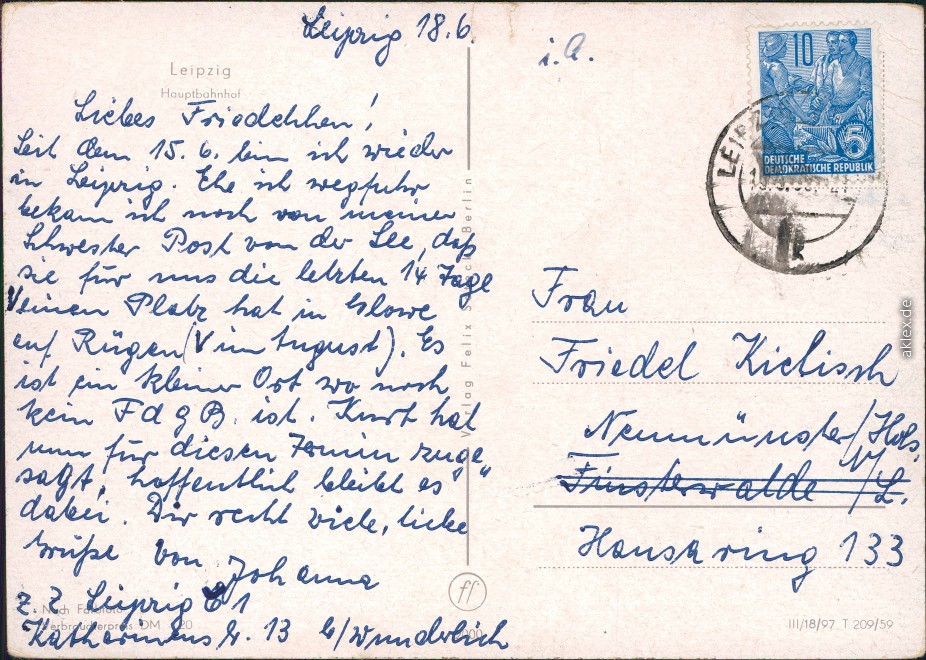 Leipzig 18.6.
Leipzig
Hauptbahnhof
Liebes Friedelchen!
Seit dem 15.6. bin ich wieder
in Leipzig. Ehe ich wegfuhr
bekam ich noch von meiner
Schwester Post von der See, daß
sie für uns die letzten 14 Tage
einen Platz hat in Glowe
auf Rügen (V im August). Es
ist ein kleiner Ort wo noch
kein FdgB. ist. Kurt hat
nun für diesen Termin zuge
sagt, hoffentlich bleibt es "
dabei. Dir recht viele, liebe
Grüße von Johanna
z. Z Leipzig C 1
Katharinenstr. 13 b/Wunderlich
Nach Farbfoto
Verbraucherpreis DM 0,20
Verlag Felix Berlin
ff
i.A.
10
5
DEUTSCHE
DEMOKRATISCHE REPUBLIK
LEIPZ
Frau
Friedel Kielisch
Neumünster/Hols.
Finsterwalde N/L.
Hansaring 133
III/18/97 T 209/59
aklex.de